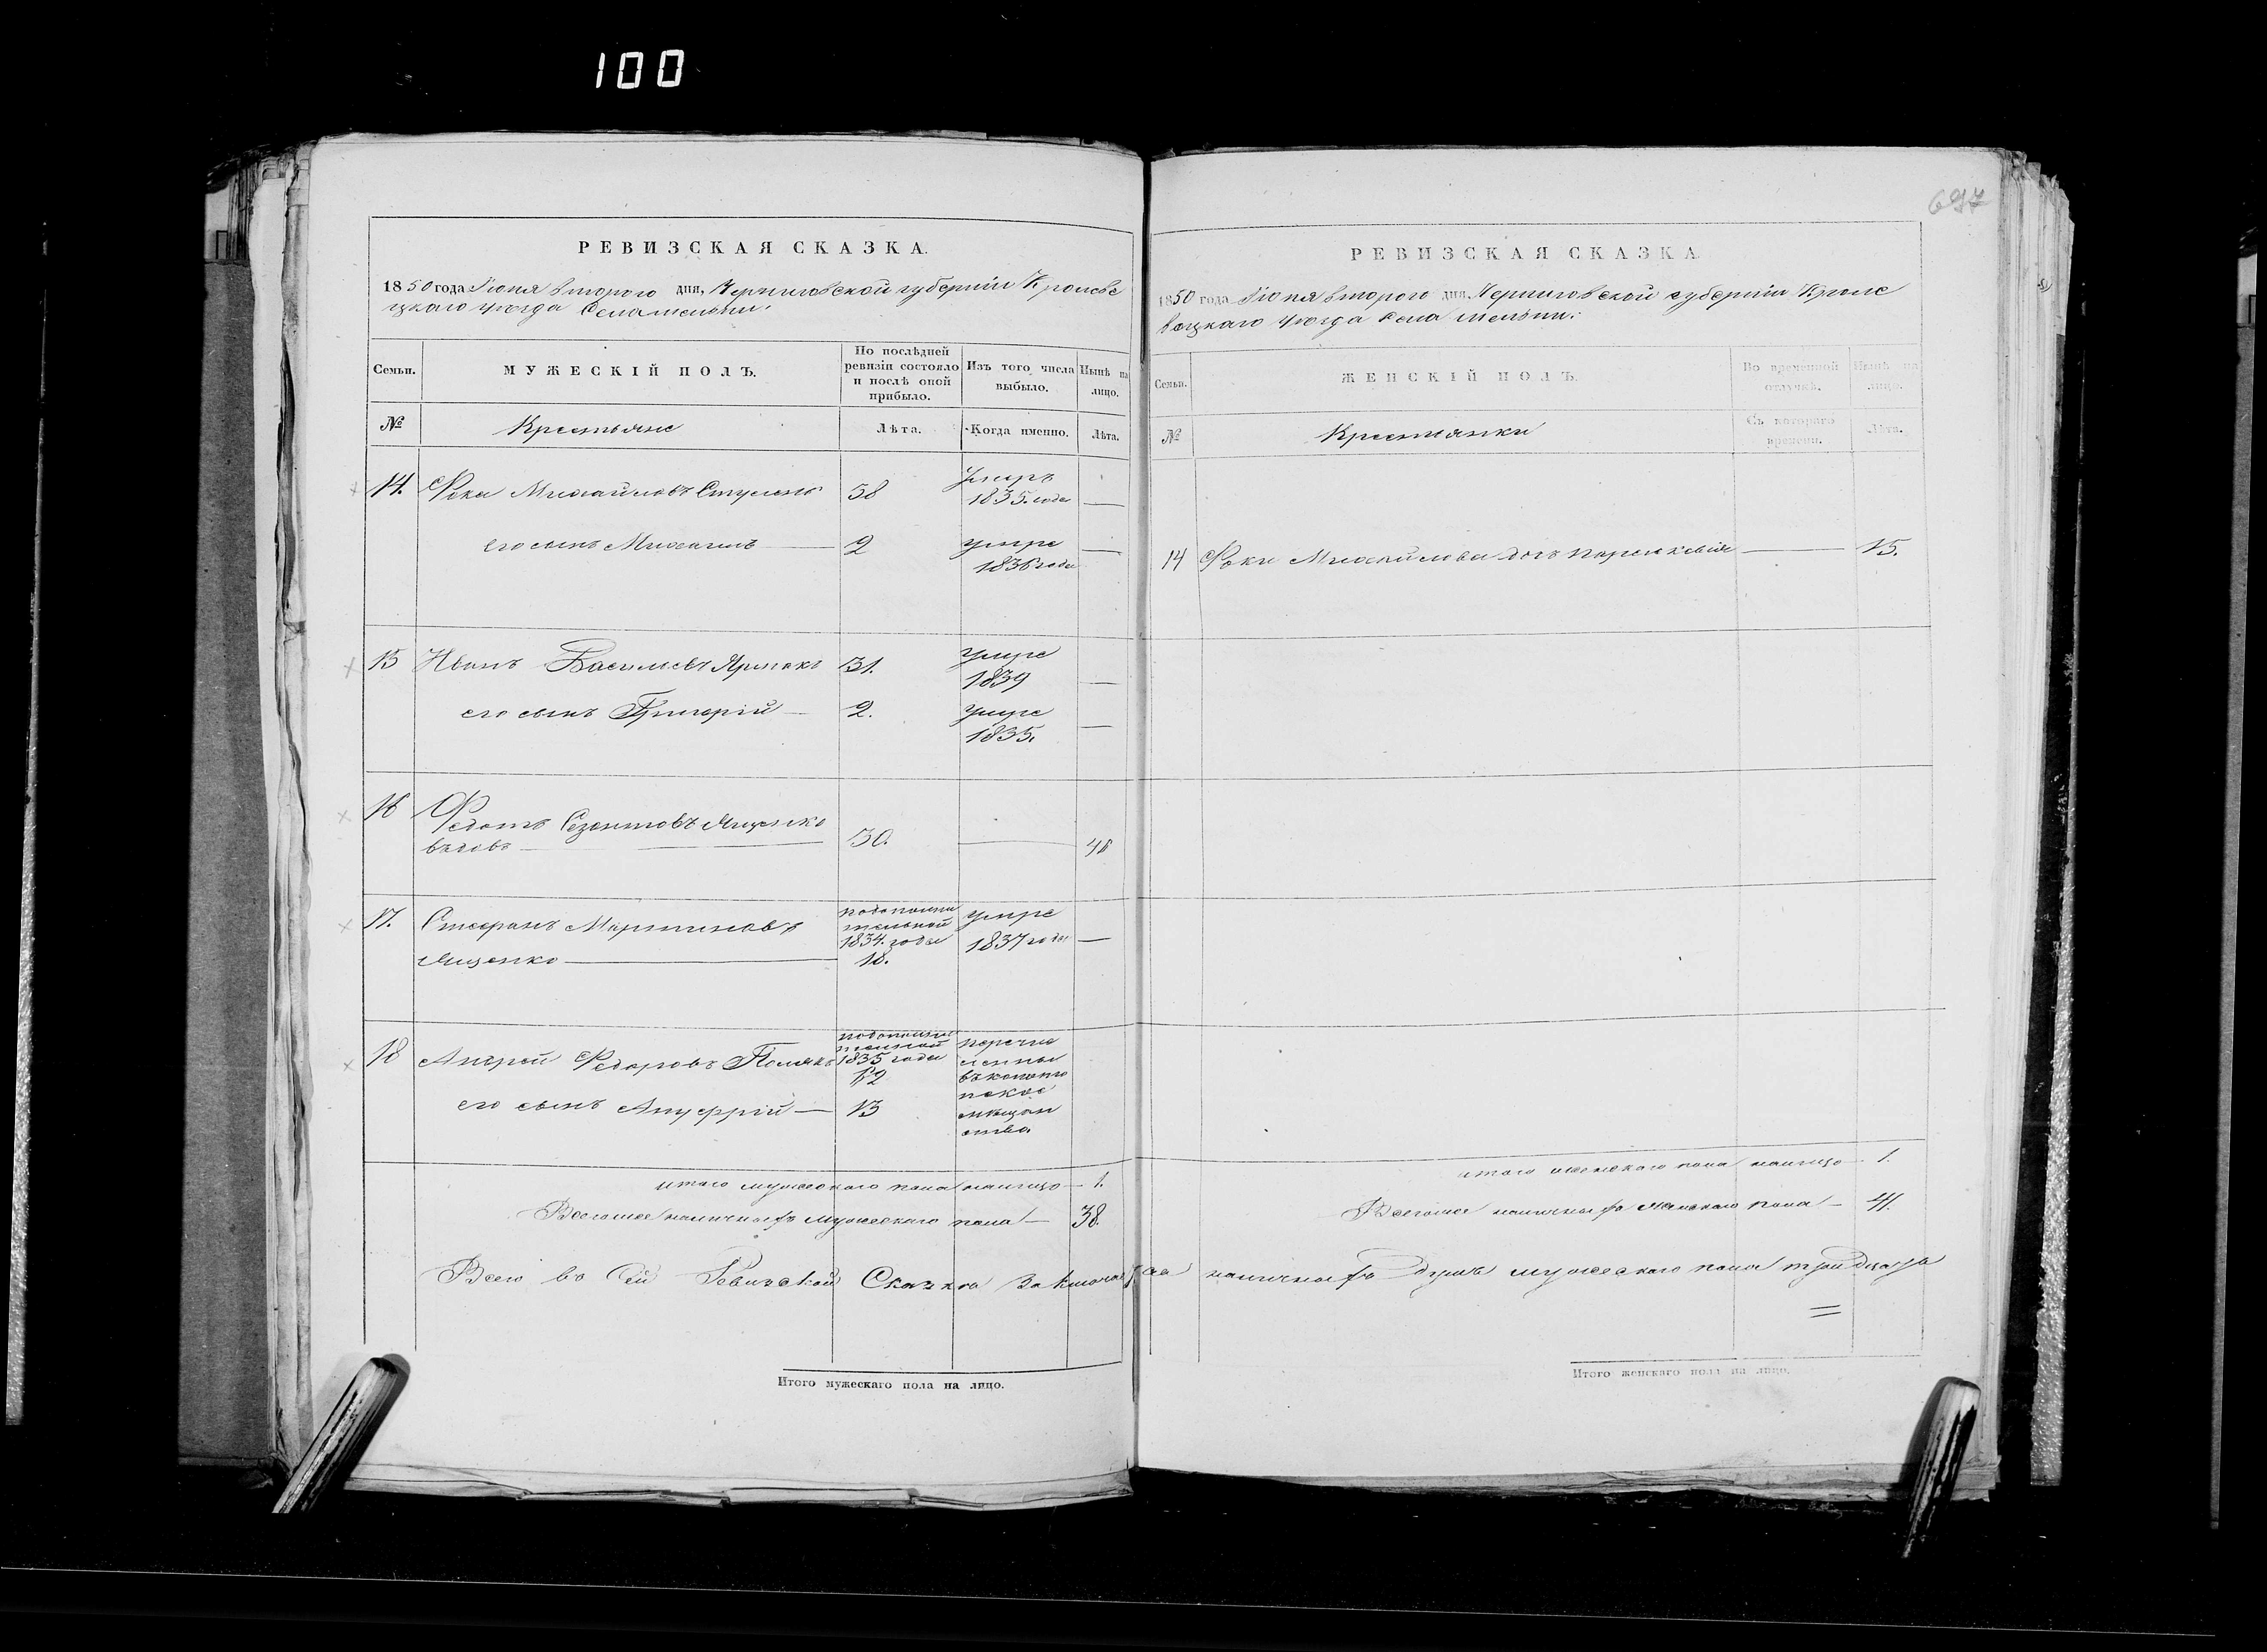 100
697
РЕВИЗСКАЯ СКАЗКА.
1850 года Іюня второго дня, Черниговской губерніи Кролеве
цкаго уѣзда Села
Семьи.
МУЖЕСКІЙ ПОЛЪ.
По послѣдней ревизіи состояло и послѣ оной прибыло.
Изъ того числа выбыло.
Нынѣ на лицо.
№
Крестьяне
Лѣта.
Когда именно.
Лѣта.
14. Фока Михайловъ 58 умеръ 1835. года —
его сынъ Михаилъ — 2 умре 1836 года —
15 Иванъ Васильевъ 31. умре 1839 —
его сынъ Григорій — 2. умре 1835. —
16 Федотъ Ященко
30. —
17. Стефанъ Мартиновъ
Ященко —
1834. года
18.
умре
1837 года —
18 Андрей Федоровъ Полякъ
1835 года
его сынъ Ануфрій — 13
перечис
лены
въ конотоп
ское
мѣщан
ство
итого мужескаго пола налицо — 1.
Всегоже наличныхъ мужескаго пола — 38.
Итого мужескаго пола на лицо.
РЕВИЗСКАЯ СКАЗКА.
1850 года Іюня второго дня, Черниговской губерніи Кроле
вецкаго уѣзда села
Семьи.
ЖЕНСКІЙ ПОЛЪ.
Во временной отлучкѣ.
Нынѣ на лицо.
№
Крестьянки
Съ котораго времени.
Лѣта.
14 Фоки Михайлова дочь — 15.
итого женскаго пола налицо — 1.
Всегоже наличныхъ женскаго пола — 41.
Всего въ Сей Ревизской Сказкѣ заключается наличныхъ душъ мужескаго пола тридцать
Итого женскаго пола на лицо.